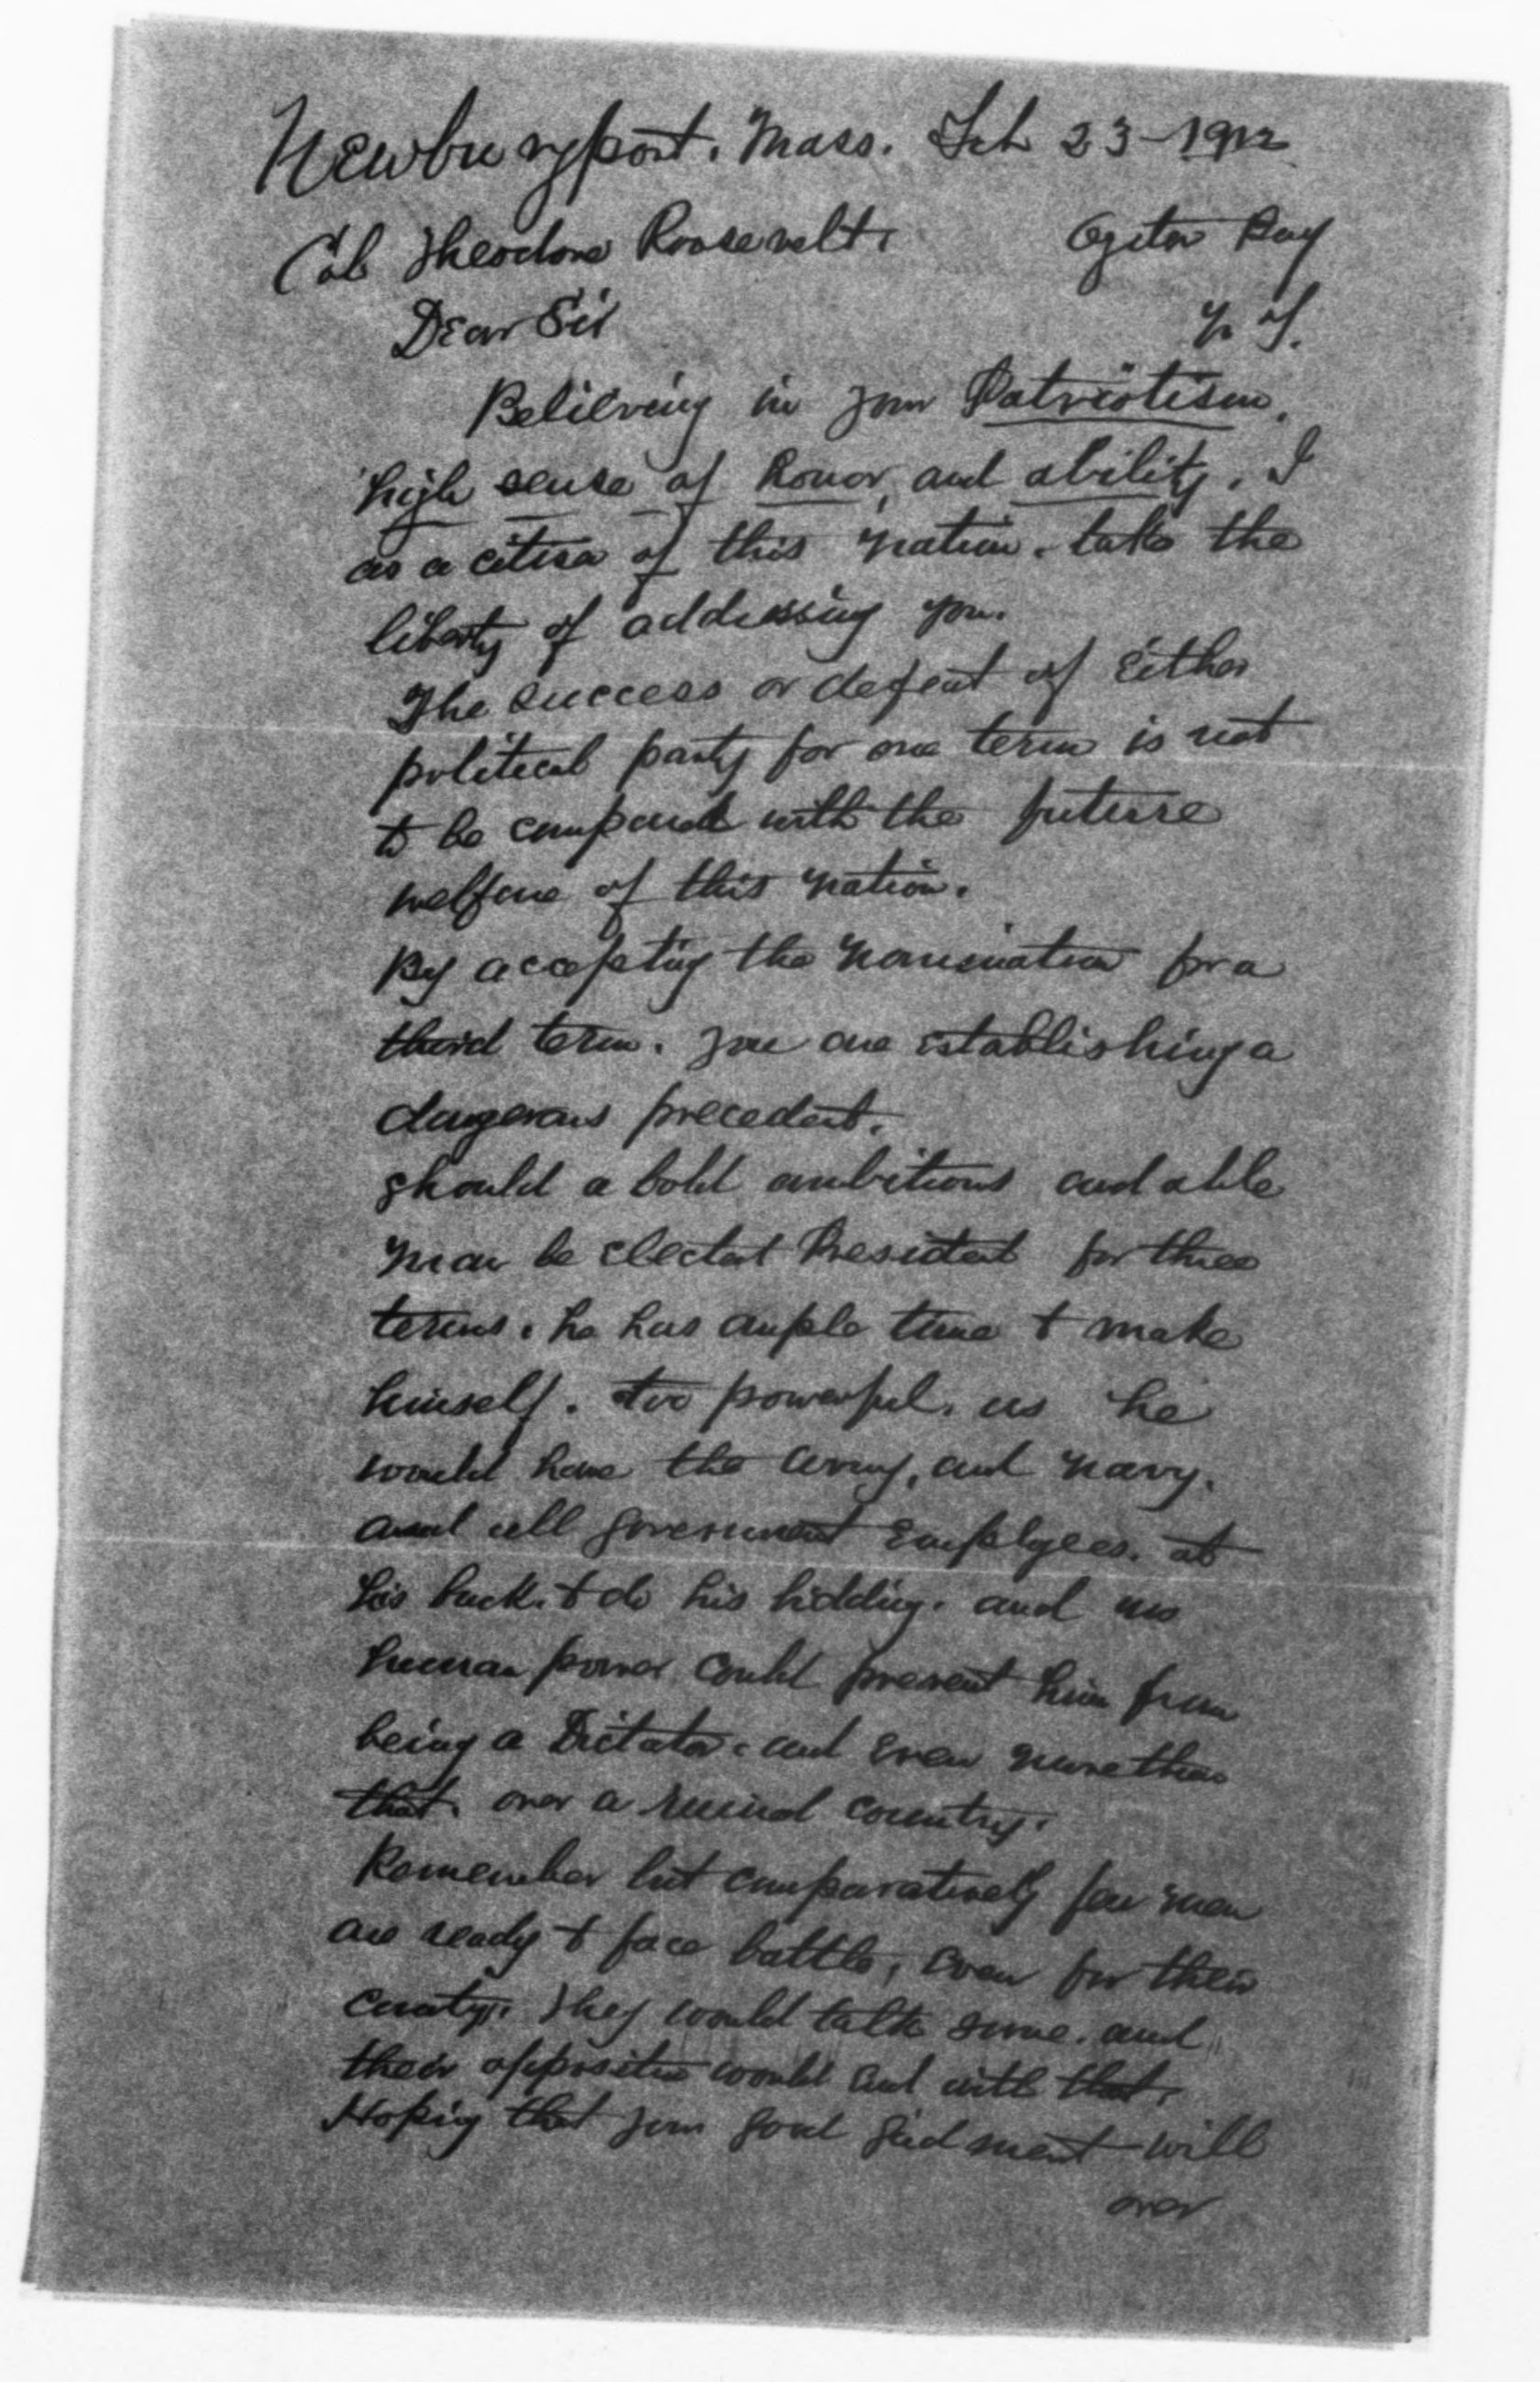 Newburyport. Mass. Feb 23-1912
Col Theodore Roosevelt. Oyster Bay
Dear Sir N. Y.
Believing in your Patriotism,
high sense of honor, and ability, I
as a citizen of this nation. take the
liberty of addressing you.
The success or defeat of Either
political party for one term is not
to be compared with the future
welfare of this nation.
By accepting the nomination for a
third term. you are establishing a
dangerous precedent.
Should a bold ambitious and able
man be elected President for three
terms. he has ample time to make
himself. too powerful. as he
would have the army, and navy.
and all government Employees. at
his back. to do his bidding. and no
human power could prevent him from
being a Dictator. and even more than
that. over a ruined country.
Remember but comparatively few men
are ready to face battle, even for their
country. They would talk some. and
their opposition would end with that.
Hoping that your good judment will
over